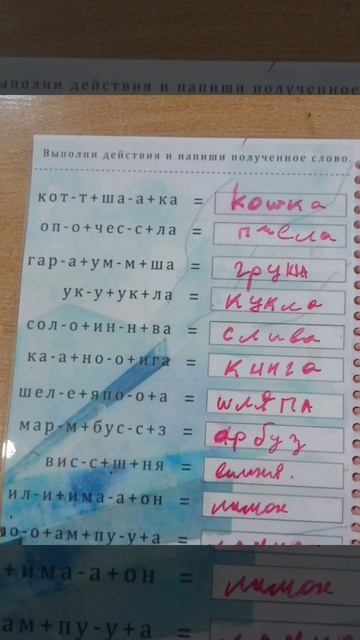 ыполни действия и напиши полученное
Выполни действия и напиши полученное слово.
кот-т+ша-а+ка = кошка
оп-о+чес-с+ла = пчела
гар-а+ум-м+ша = груша
ук-у+ук+ла = кукла
сол-о+ин-н+ва = слива
ка-а+но-о+ига = книга
шел-е+япо-о+а = шляпа
мар-м+бус-с+з = арбуз
вис-с+ш+ня = вишня.
ил-и+има-а+он = лимон
о-о+ам+пу-у+а =
+има-а+он = лимон
ам+пу-у+а =